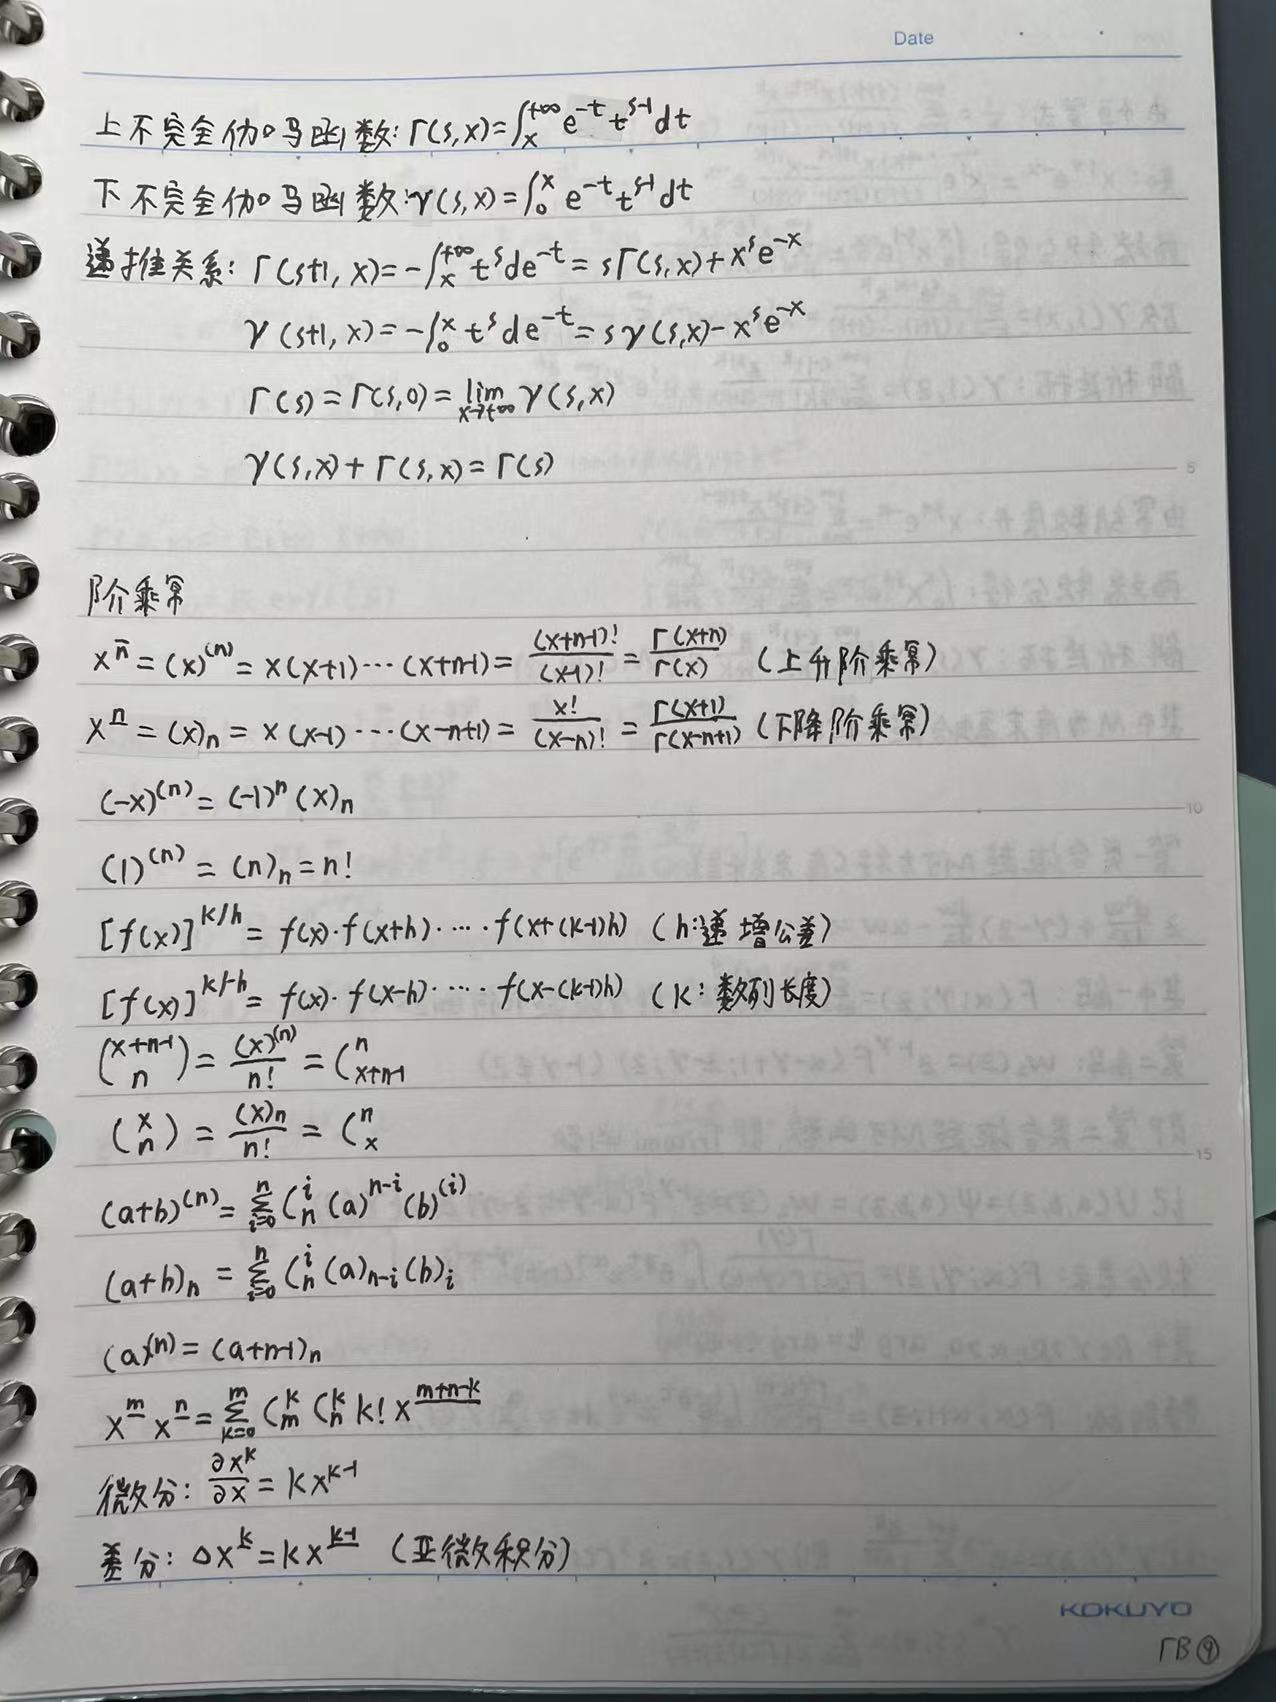 Date
上不完全伽马函数: Γ(s,x)=∫ₓ⁺∞ e⁻ᵗ tˢ⁻¹ dt
下不完全伽马函数: γ(s,x)=∫₀ˣ e⁻ᵗ tˢ⁻¹ dt
递推关系: Γ(s+1, x)=-∫ₓ⁺∞ tˢ de⁻ᵗ = sΓ(s,x)+xˢe⁻ˣ
γ(s+1, x)=-∫₀ˣ tˢ de⁻ᵗ = sγ(s,x)-xˢe⁻ˣ
Γ(s)=Γ(s,0)=lim_{x→+∞} γ(s,x)
γ(s,x)+Γ(s,x)=Γ(s)
5
阶乘幂
x^{n̅} = (x)^{(n)} = x(x+1)⋯(x+n-1) = (x+n-1)!/(x-1)! = Γ(x+n)/Γ(x) (上升阶乘幂)
x^{n̲} = (x)ₙ = x(x-1)⋯(x-n+1) = x!/(x-n)! = Γ(x+1)/Γ(x-n+1) (下降阶乘幂)
(-x)^{(n)} = (-1)ⁿ(x)ₙ
10
(1)^{(n)} = (n)ₙ = n!
[f(x)]^{k/h} = f(x)·f(x+h)·⋯·f(x+(k-1)h) (h:递增公差)
[f(x)]^{k/-h} = f(x)·f(x-h)·⋯·f(x-(k-1)h) (k: 数列长度)
(x+n-1 n) = (x)^{(n)}/n! = C^{n}_{x+n-1}
(x n) = (x)ₙ/n! = C^{n}_{x}
15
(a+b)^{(n)} = Σ_{i=0}^{n} C^{i}_{n} (a)^{n-i} (b)^{(i)}
(a+b)ₙ = Σ_{i=0}^{n} C^{i}_{n} (a)_{n-i} (b)ᵢ
(a)^{(n)} = (a+n-1)ₙ
x^{m̲} x^{n̲} = Σ_{k=0}^{m} C^{k}_{m} C^{k}_{n} k! x^{\underline{m+n-k}}
微分: ∂xᵏ/∂x = kxᵏ⁻¹
差分: Δx^{k̲} = kx^{\underline{k-1}} (亚微积分)
KOKUYO
ΓB⑨